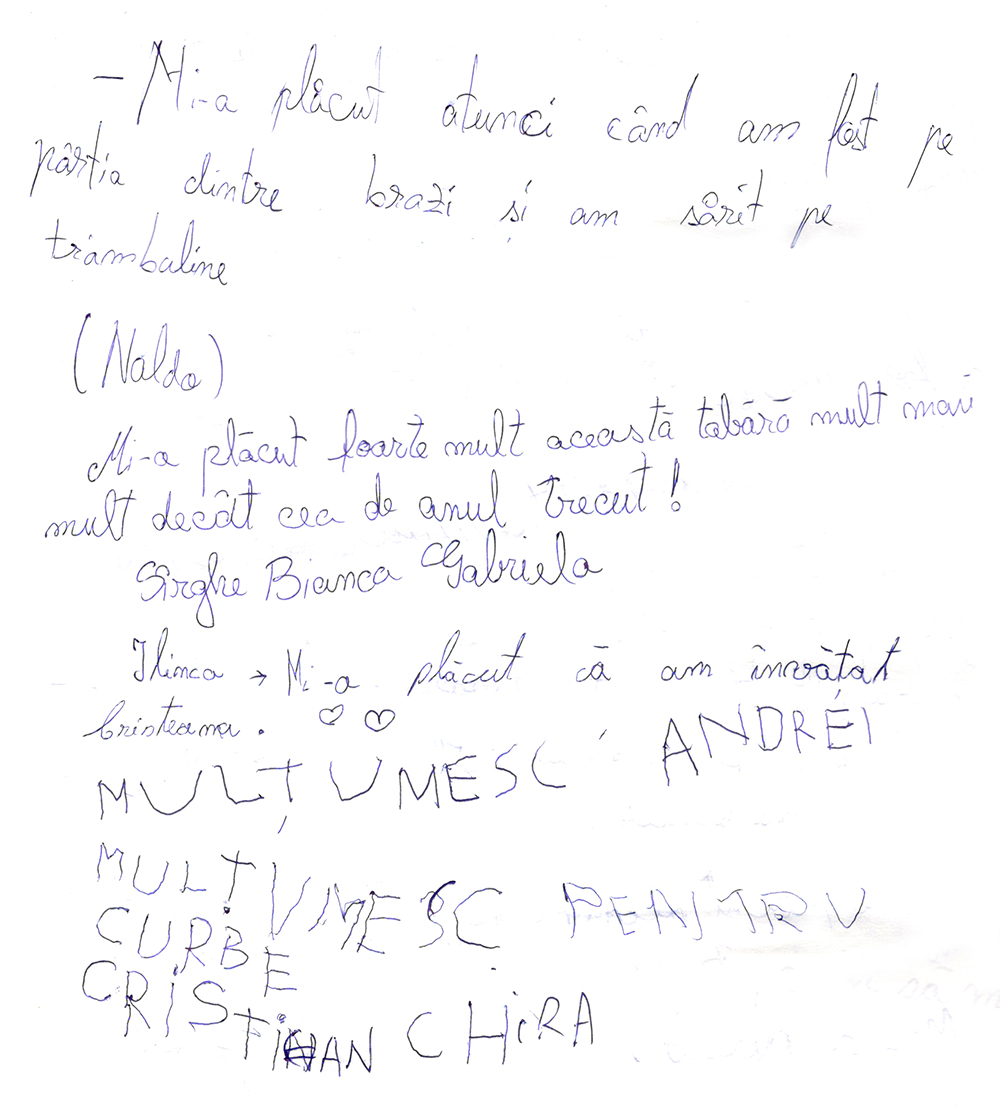 - Mi-a plăcut atunci când am fost pe
pârtia dintre brazi și am sărit pe
trambaline
(Naldo)
Mi-a plăcut foarte mult această tabără mult mai
mult decât cea de anul trecut!
Sîrghe Bianca Gabriela
Ilinca → Mi-a plăcut că am învățat
cristeana. ♡ ♡
MULȚUMESC ANDREI
MULȚUMESC PENTRU
CURBE
CRISTIAN CHIRA